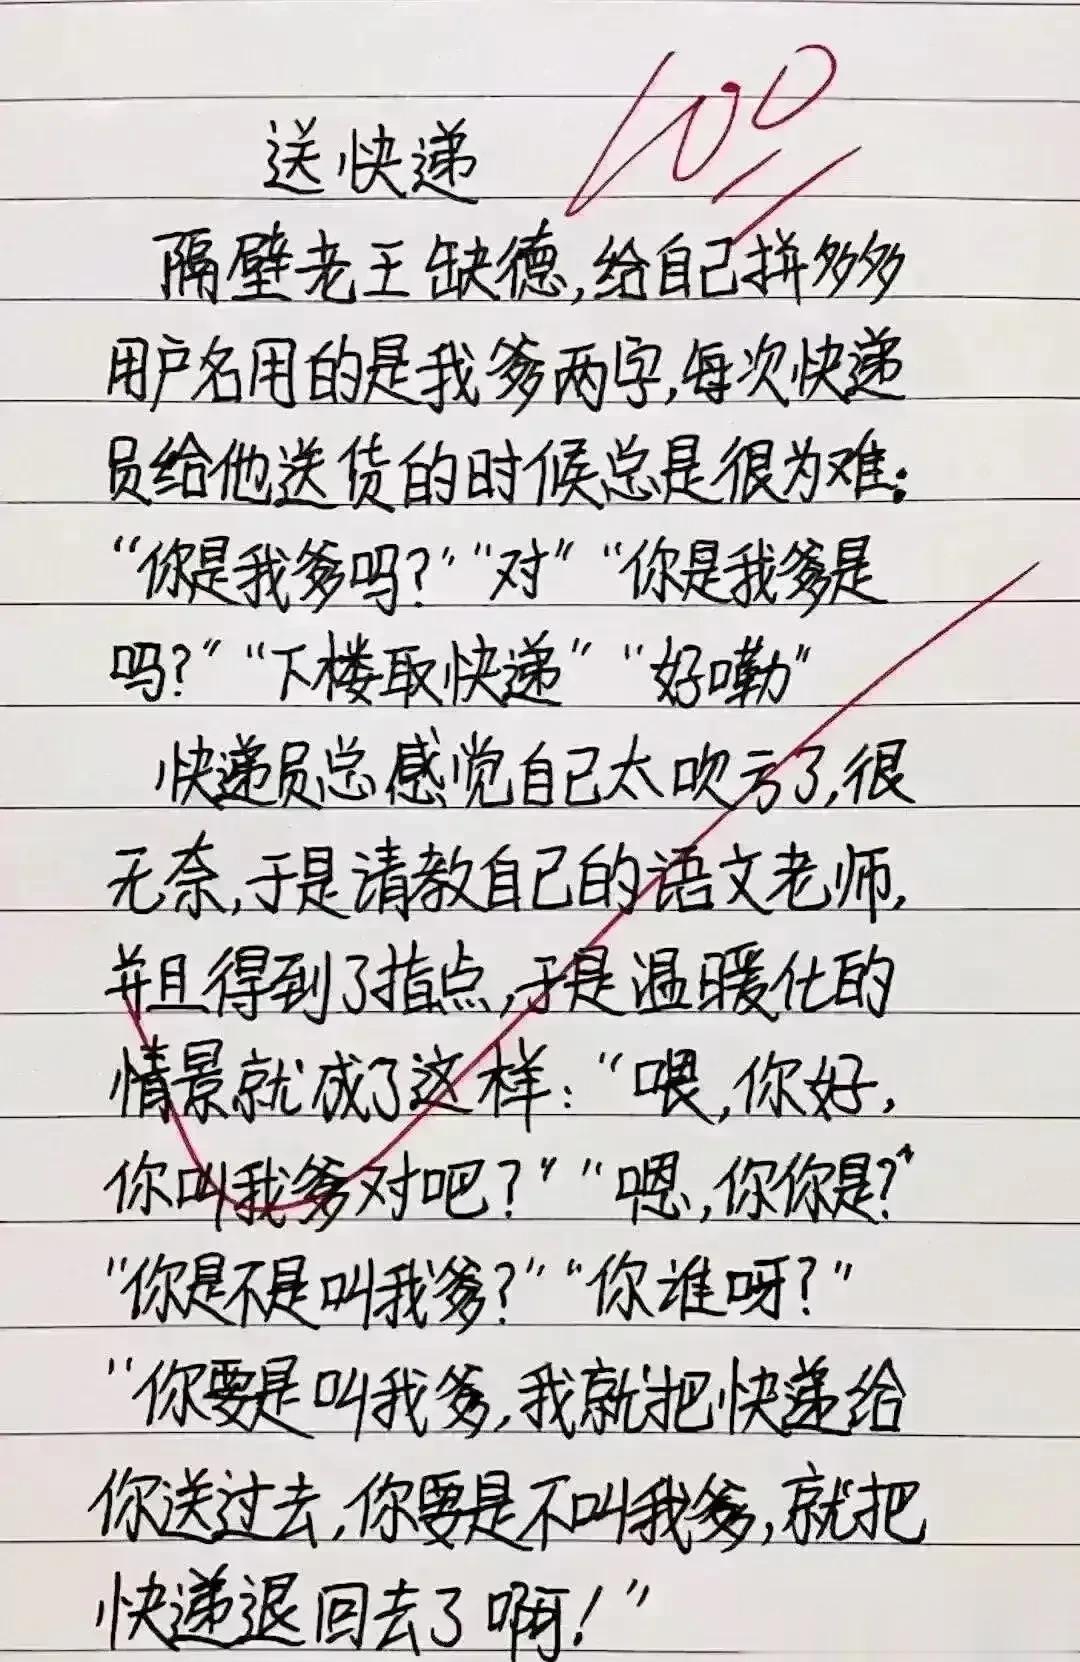 送快递
100
隔壁老王缺德,给自己拼多多
用户名用的是我爹两字,每次快递
员给他送货的时候总是很为难:
“你是我爹吗?”“对”“你是我爹是
吗?”“下楼取快递”“好嘞”
快递员总感觉自己太吹亏了,很
无奈,于是请教自己的语文老师,
并且得到了指点,于是温暖仕的
情景就成了这样:“喂,你好,
你叫我爹对吧?”“嗯,你你是?”
“你是不是叫我爹?”“你谁呀?”
“你要是叫我爹,我就把快递给
你送过去,你要是不叫我爹,就把
快递退回去了啊!”